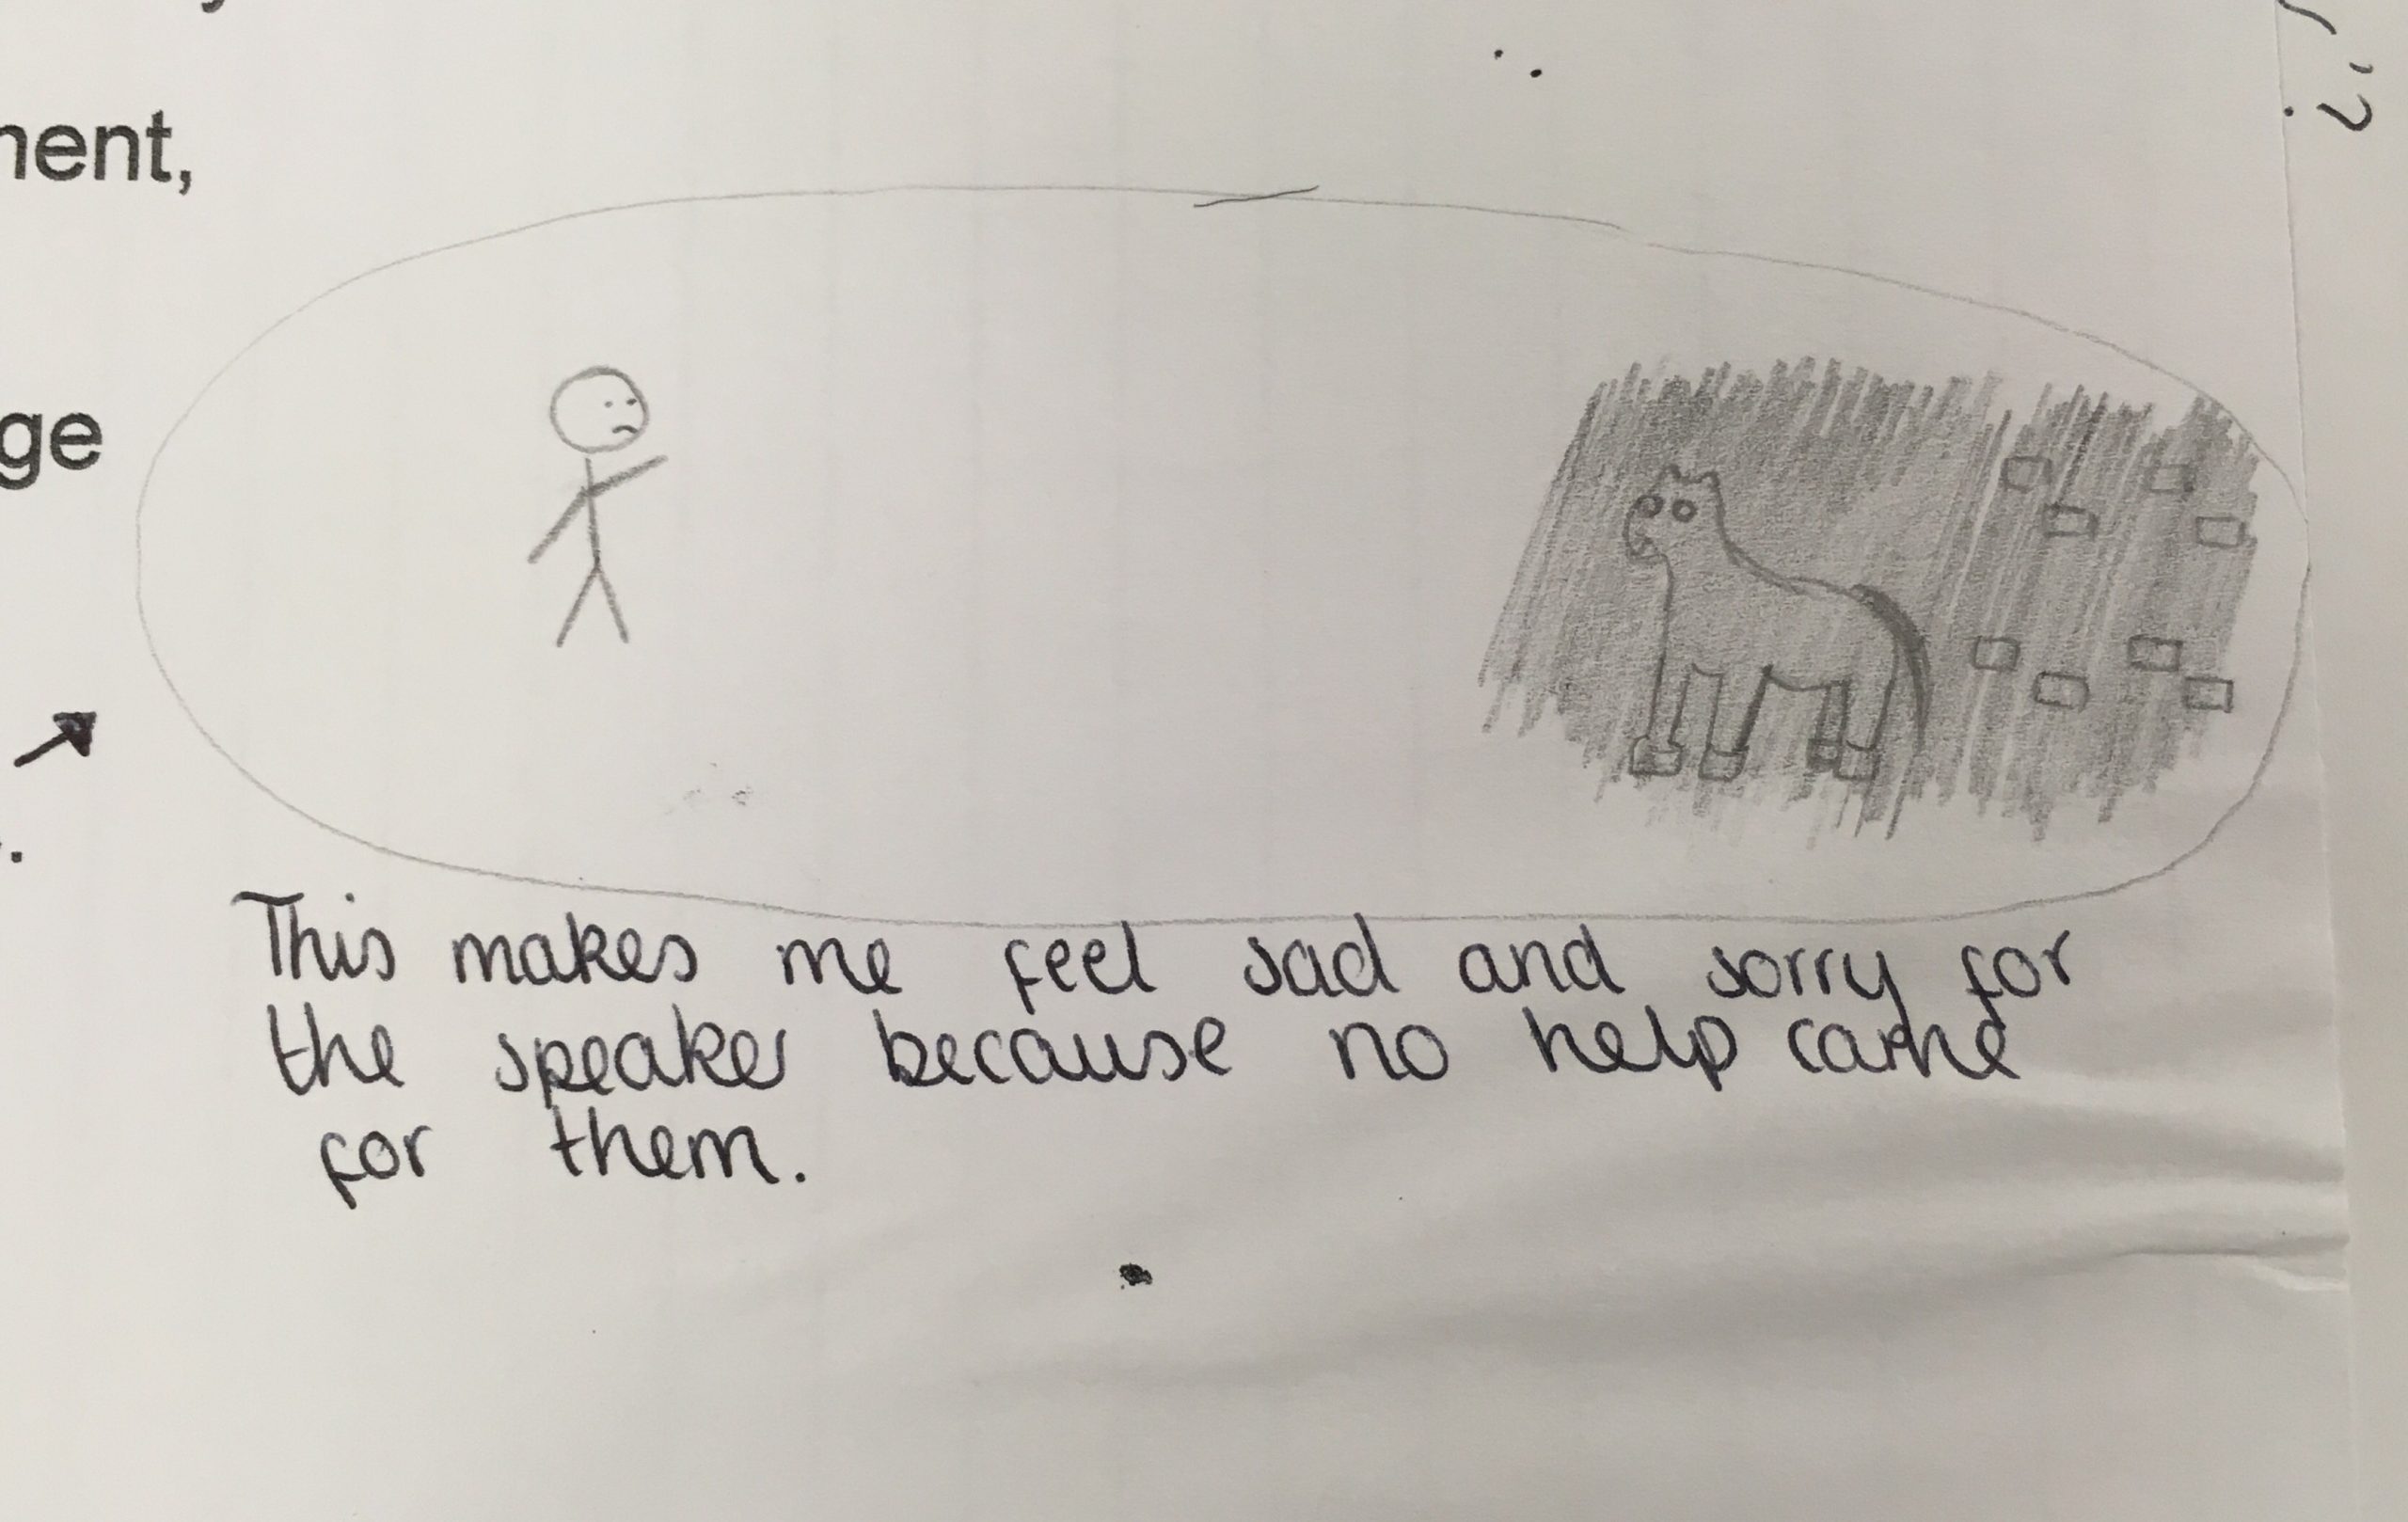 ment,
ge
This makes me feel sad and sorry for
the speaker because no help came
for them.